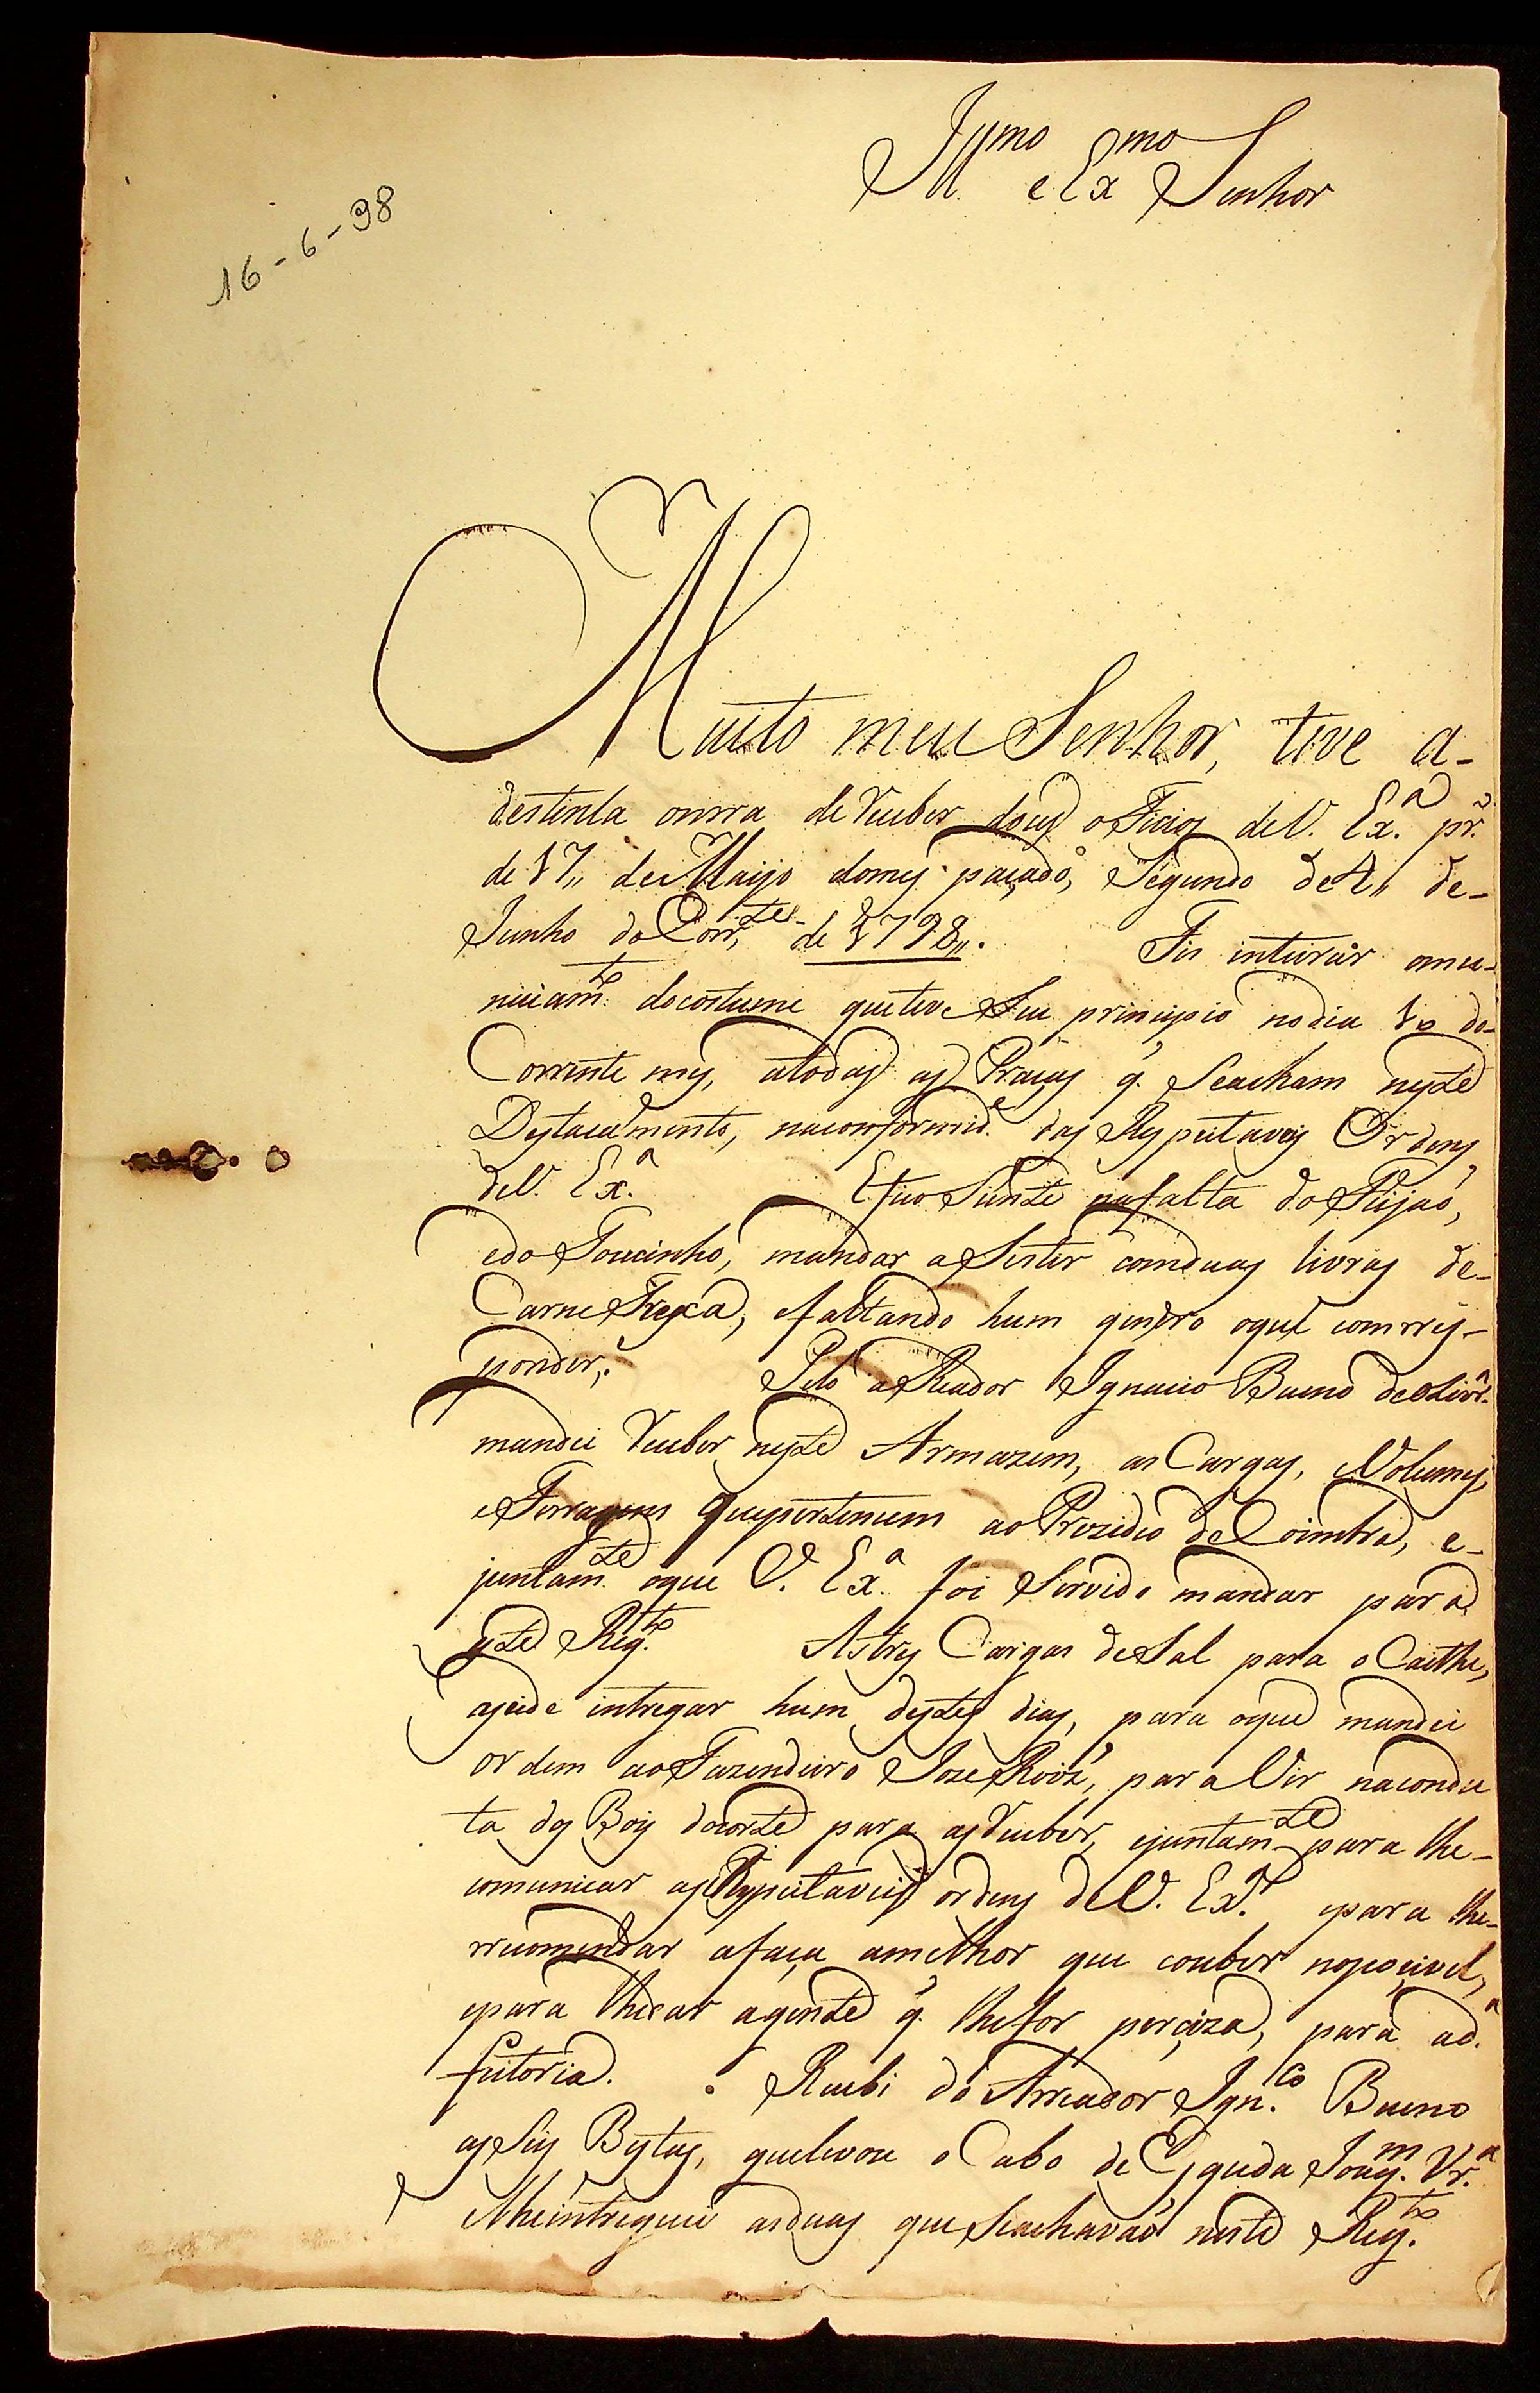 Ill.mo e Ex.mo Senhor
16-6-98
Muito meu Senhor, tive a-
destinta onrra de Receber dous oficios de V. Ex.a pr.o
de 17,, de Maijo do mes paçado, Segundo de 4,, de-
Junho do Corr.te de 1798,,. Fis inteirar o mu-
niciam.to do costume que teve Seu principio no dia 1.o do-
Corrente mes, a todas as Praças q. Se acham neste
Destacamento, na conformid.e das Respeitaveis Ordens
de V. Ex.a E fico Siente na falta do Feijaõ,
e do Toucinho, mandar aSister com duas livras de-
Carne Fresca, e faltando hum genero o que comrres-
ponder,. Pelo aReador Ignacio Bueno de Olivr.a
mandei Receber neste Armazem, as Cargas, e Volumes,
e Ferragens que pertencem ao Prezidio de Coimbra, e-
juntam.te o que V. Ex.a foi Servido mandar para
este Reg.to As tres Cargas de Sal para o Caethe,
as eide intregar hum destes dias, para o que mandei
ordem ao Fazendeiro Joze Roiz', para Vir na condu
ta dos Bois do corte para as Receber, e juntam.te para lhe-
comunicar as Respeitaveis ordens de V. Ex.a e para lhe-
rrecomendar a faça a melhor que couber no pocivel,
e para lhe dar a gente q. lhe for perciza, para a d.a
feitoria. Recebi do Arreador Ign.co Bueno
as Seis Bestas, que levou o Cabo de Esquda Joaq.m Vr.a
e lhe intreguei as duas que Se achavaõ neste Reg.to